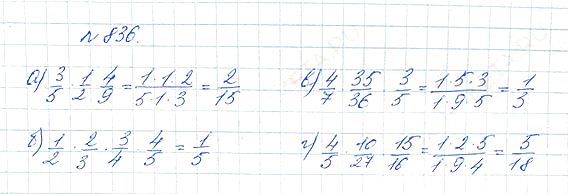 №836.
а) 3/5 · 1/2 · 4/9 = 1·1·2/5·1·3 = 2/15
в) 4/7 · 35/36 · 3/5 = 1·5·3/1·9·5 = 1/3
б) 1/2 · 2/3 · 3/4 · 4/5 = 1/5
г) 4/5 · 10/27 · 15/16 = 1·2·5/1·9·4 = 5/18